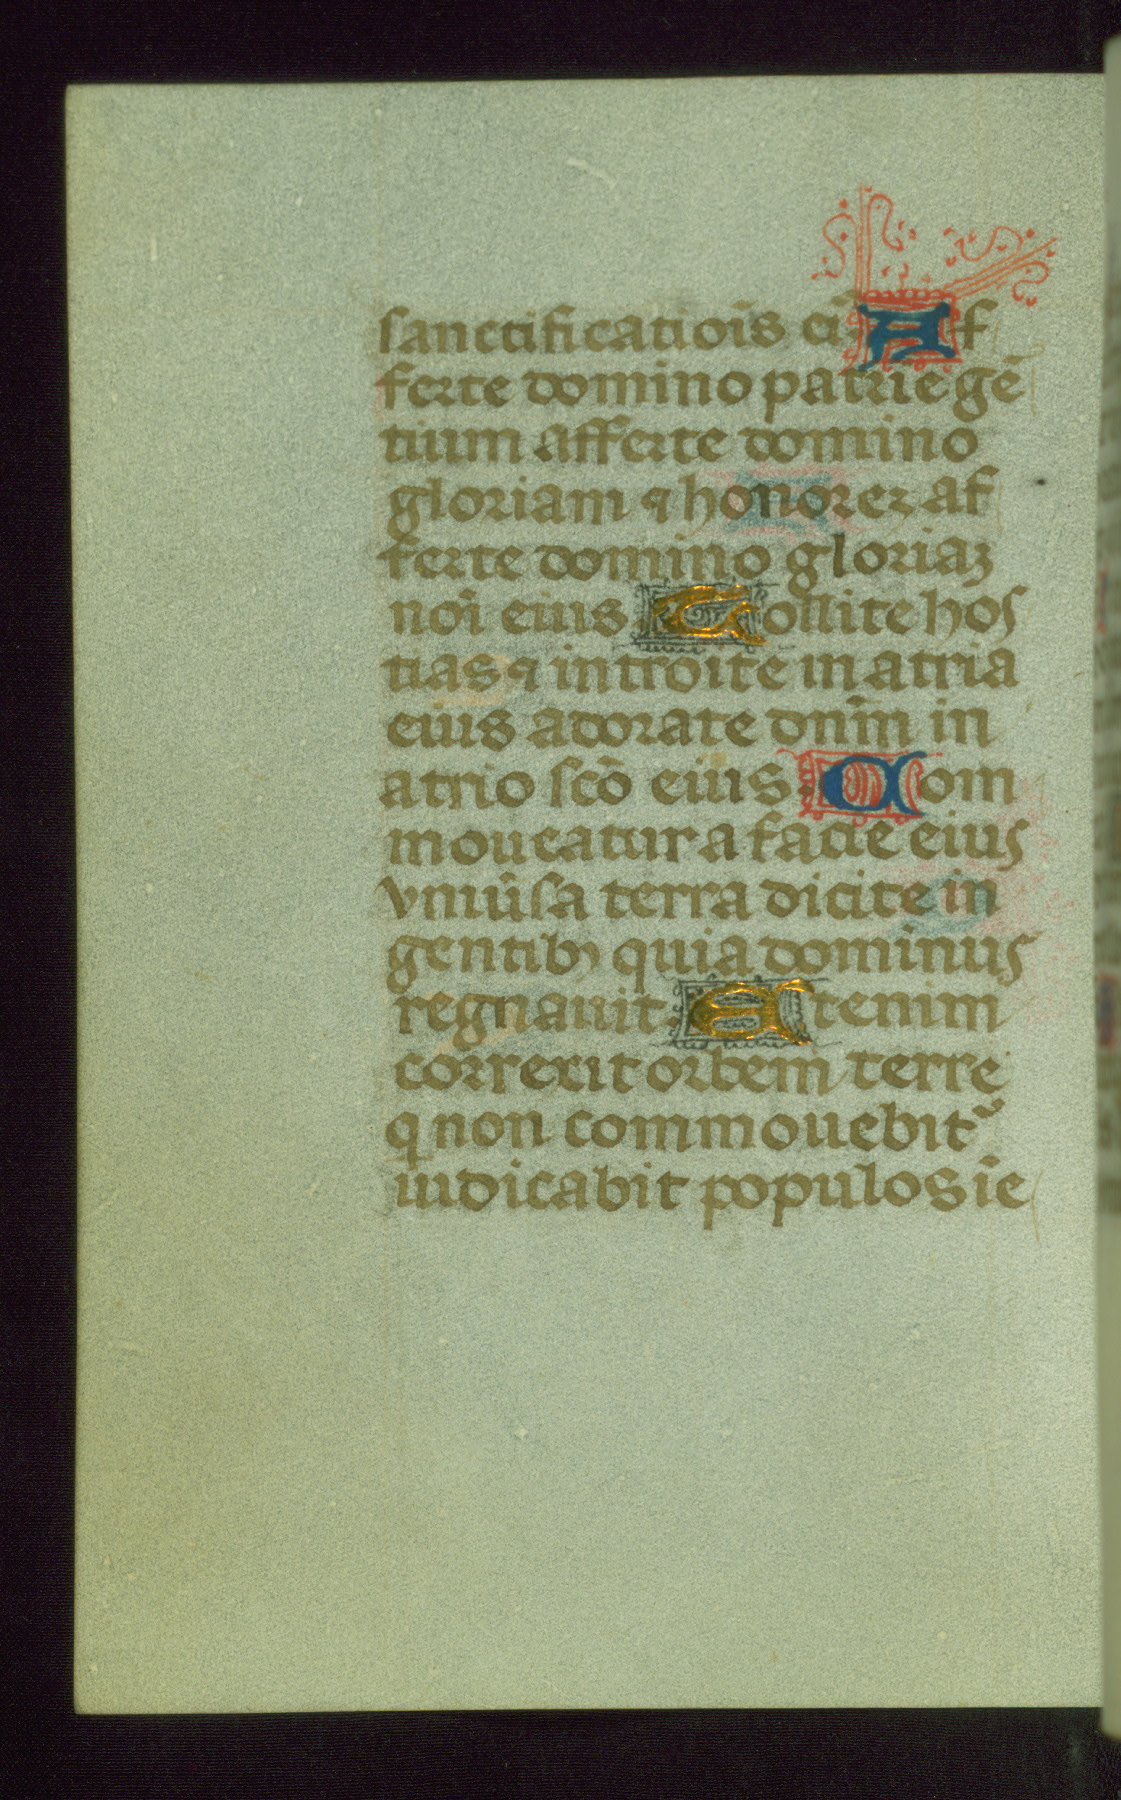 sanctificatiōis eiꝰ Af
ferte domino patrie gē
tium afferte domino
gloriam ⁊ honorez af
ferte domino gloriaz
noı̄ eius Tollite hos
tias ⁊ introite in atria
eius adorate dn̄m in
atrio scō eius Com
moueatur a facie eius
vniūsa terra dicite in
gentibꝫ quia dominus
regnauit Etenim
correxit orbem terre
q non commouebit᷑
iudicabit populos ı̄e